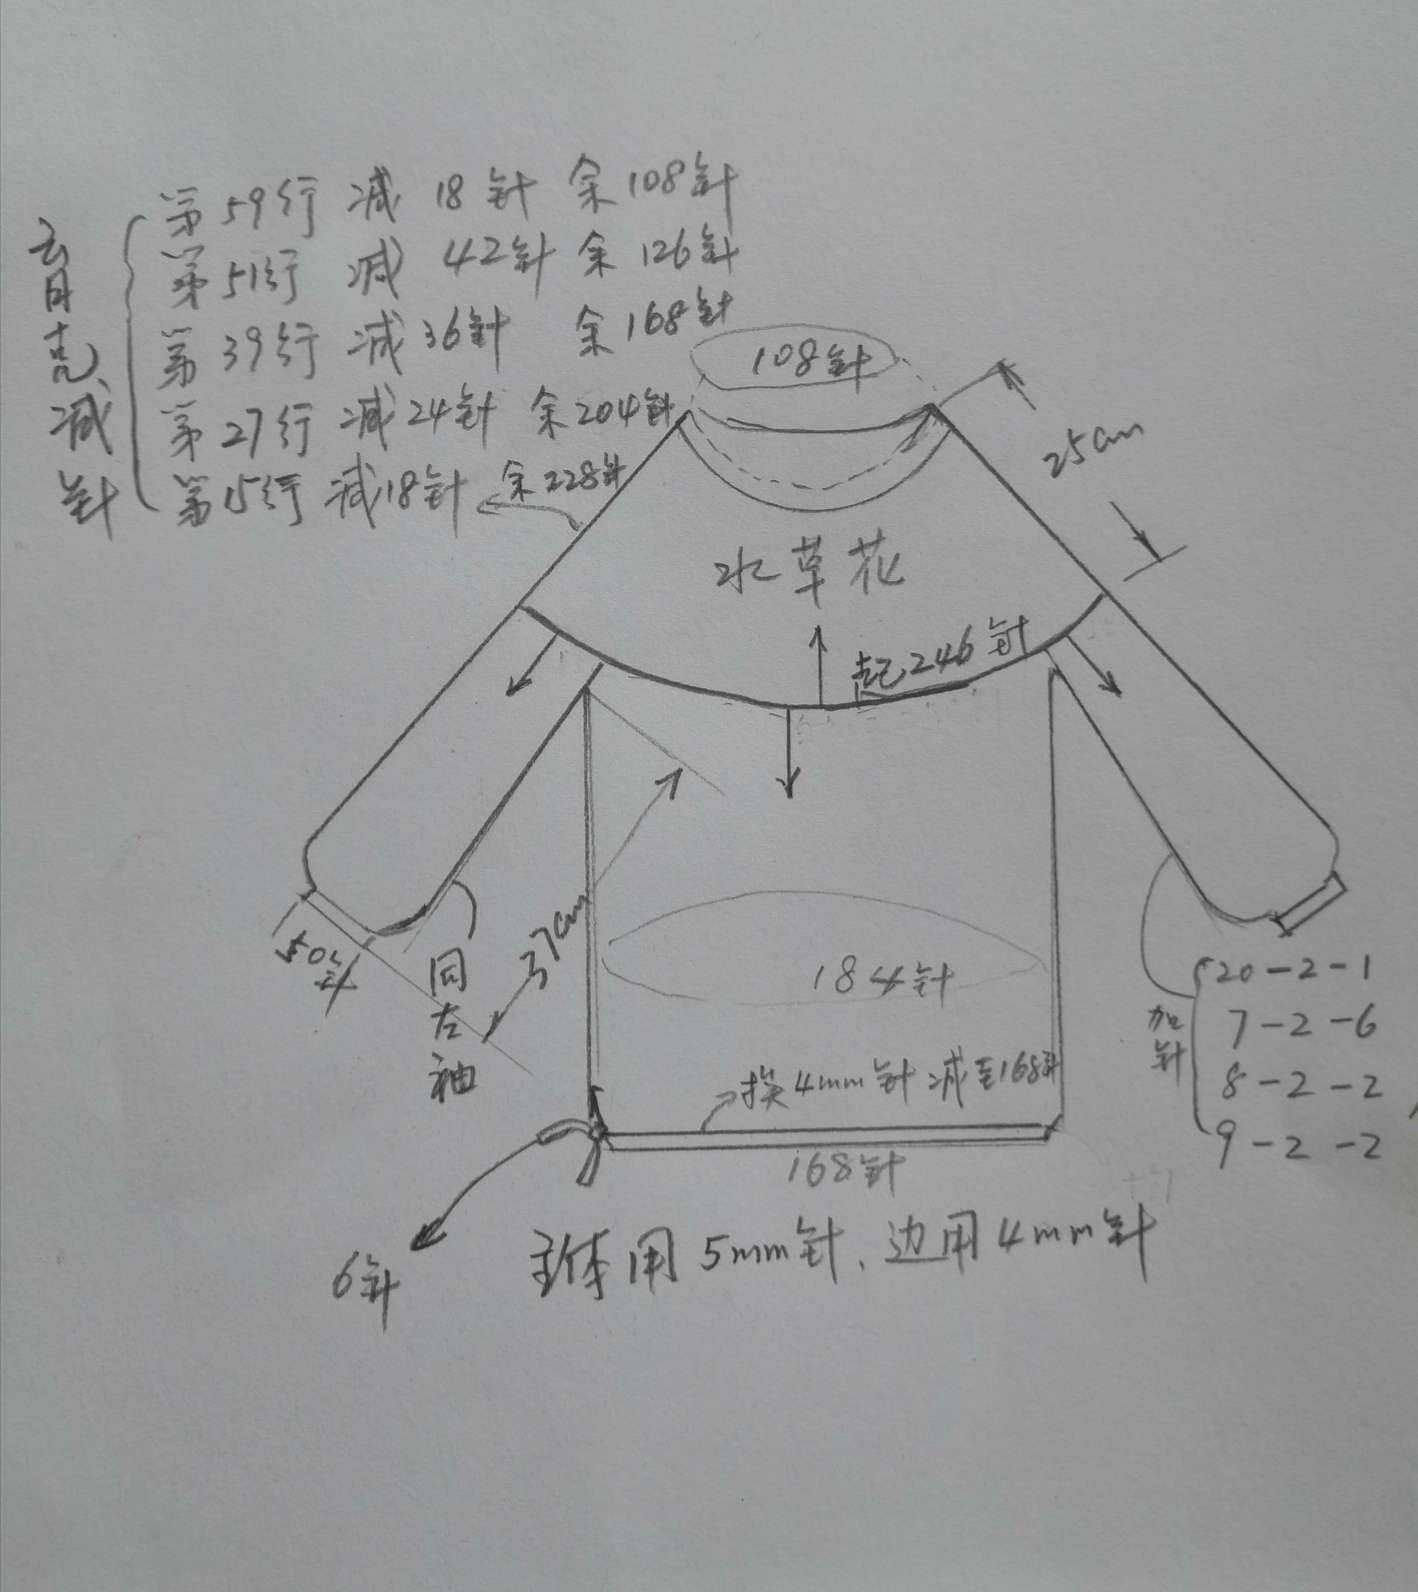 第59行 减 18针 余108针
第51行 减 42针 余 126针
第39行 减 36针 余168针
第27行 减24针 余204针
第15行 减18针 余228针
育克减针
108针
25cm
水草花
起246针
50针
同左袖
37cm
184针
加针
20-2-1
7-2-6
8-2-2
9-2-2
换4mm针减至168针
168针
6针
主体用5mm针、边用4mm针